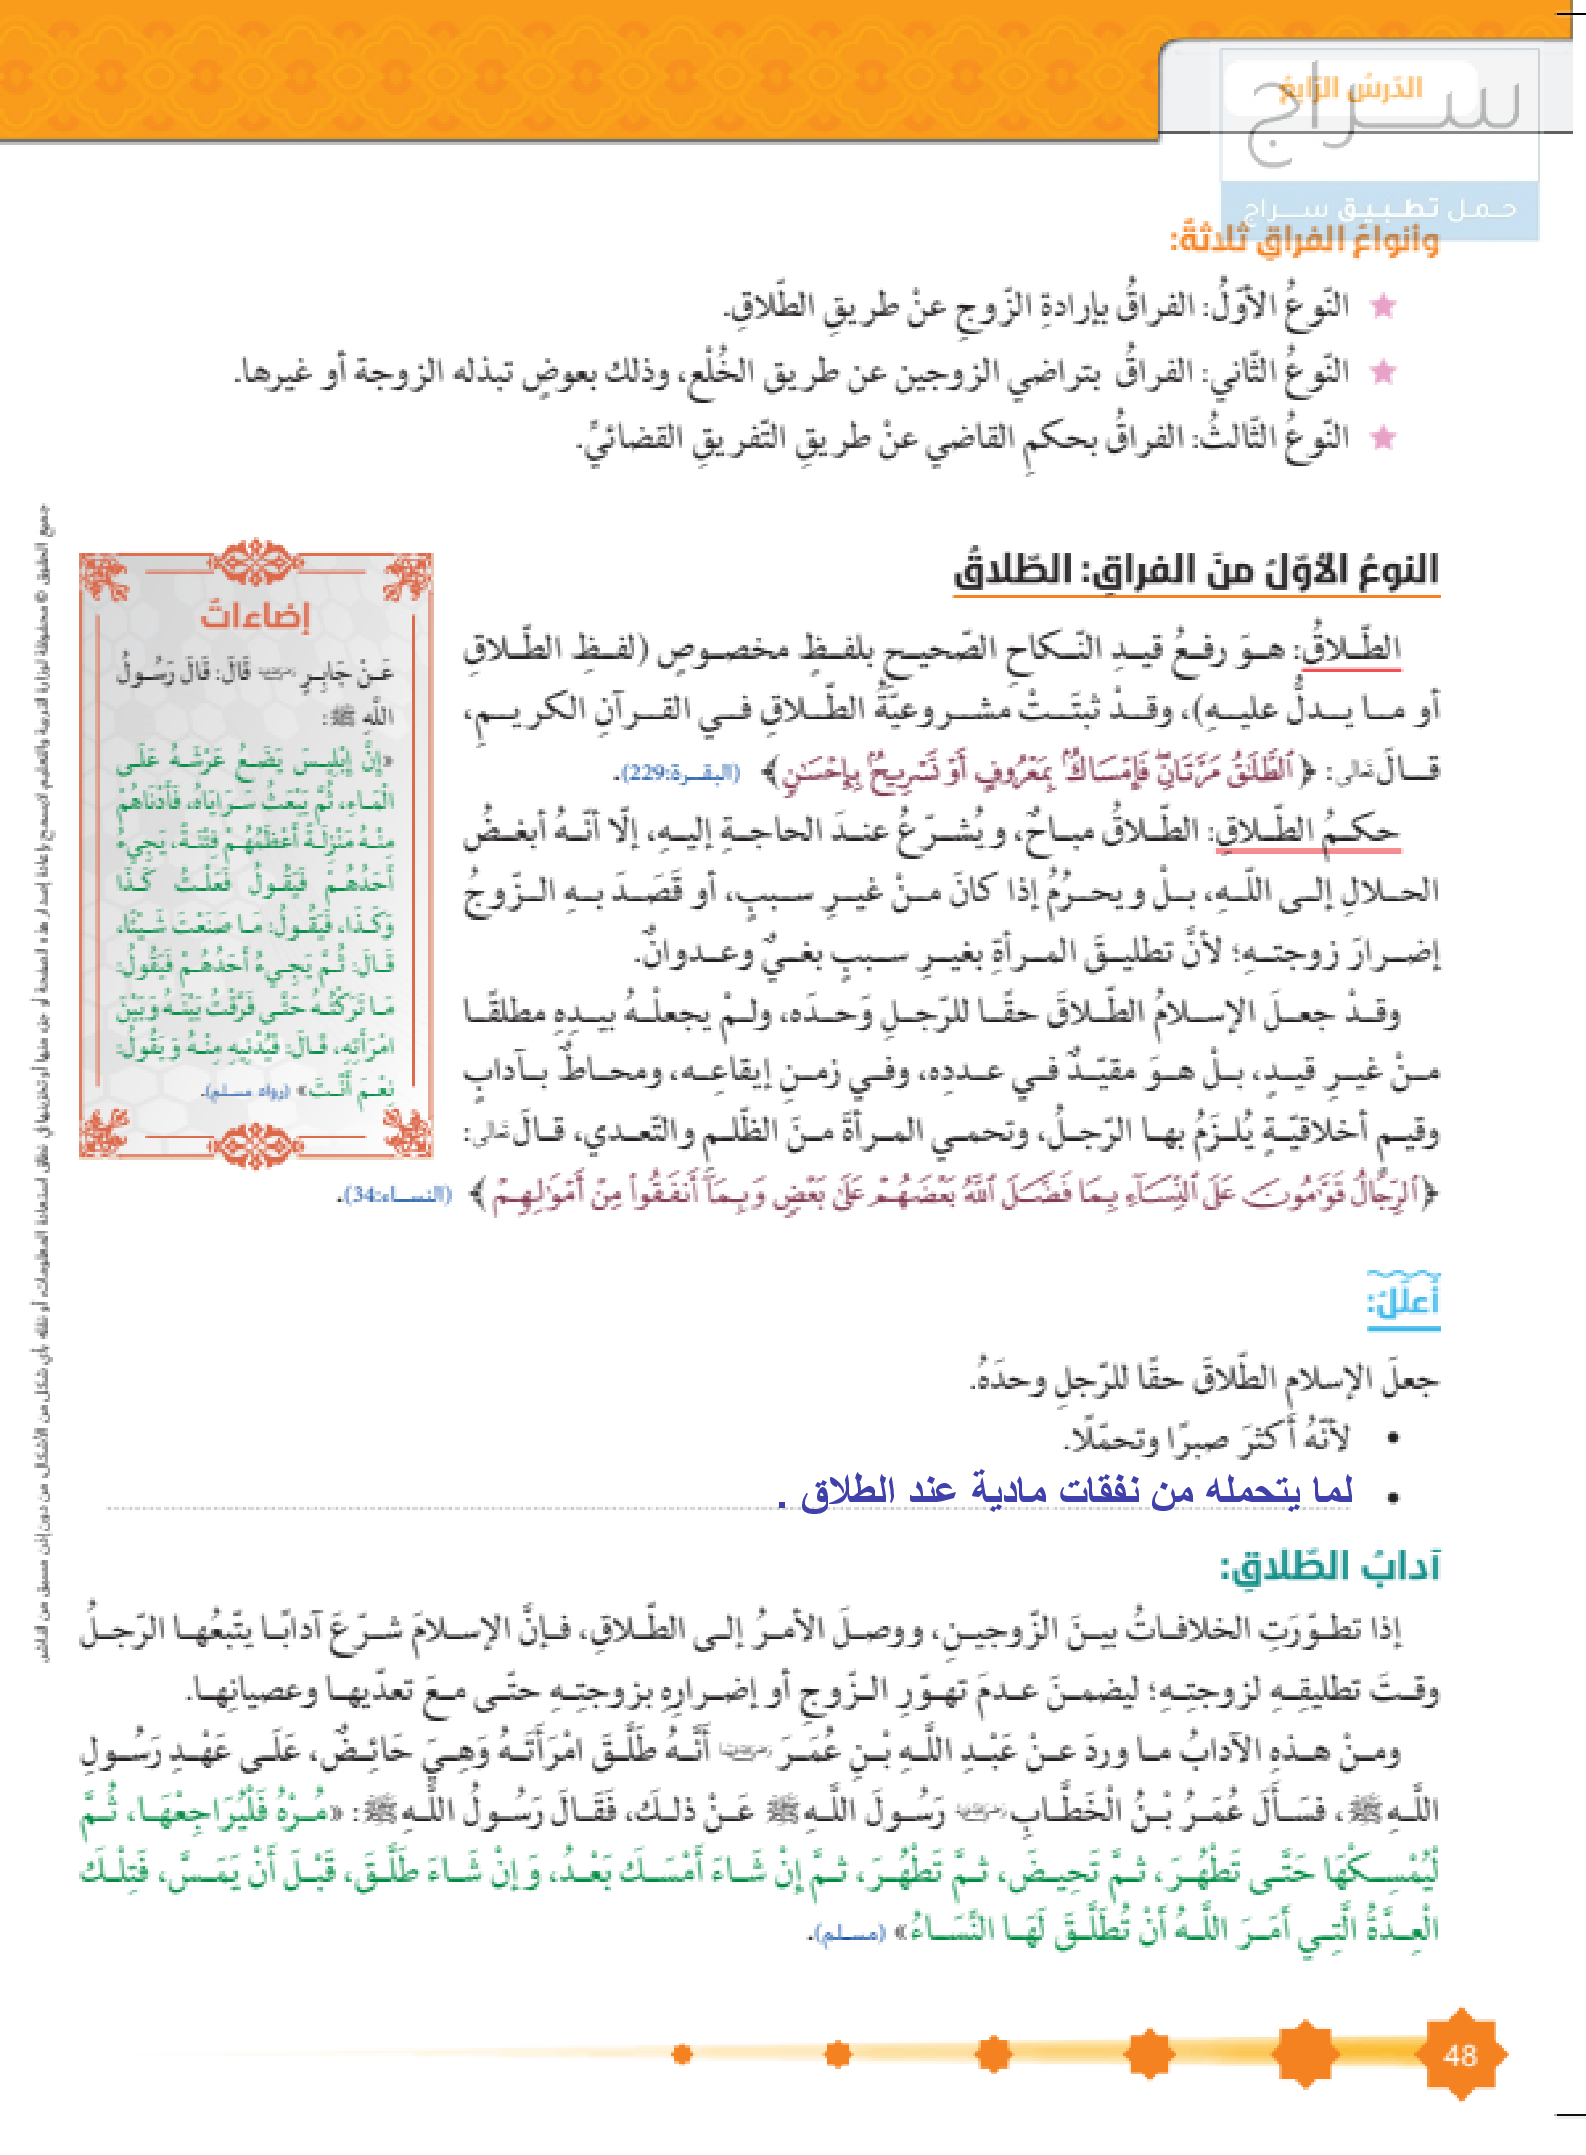 الدّرسُ الرّابعُ
سراج
حمل تطبيق سراج
وأنواعُ الفراقِ ثلاثةٌ:
النّوعُ الأوّلُ: الفراقُ بإرادةِ الزّوجِ عنْ طريقِ الطّلاقِ.
النّوعُ الثّاني: الفراقُ بتراضي الزوجين عن طريق الخُلْع، وذلك بعوضٍ تبذله الزوجة أو غيرها.
النّوعُ الثّالثُ: الفراقُ بحكمِ القاضي عنْ طريقِ التّفريقِ القضائيِّ.
النوعُ الأوّلَ منَ الفراقِ: الطّلاقُ
الطّلاقُ: هوَ رفعُ قيدِ النّكاحِ الصّحيحِ بلفظٍ مخصوصٍ (لفظِ الطّلاقِ
أو ما يدلُّ عليهِ)، وقدْ ثبتَتْ مشروعيّةُ الطّلاقِ في القرآنِ الكريمِ،
قالَ تعالى: ﴿ٱلطَّلَٰقُ مَرَّتَانِۖ فَإِمْسَاكٌۢ بِمَعْرُوفٍ أَوْ تَسْرِيحٌۢ بِإِحْسَٰنٍ﴾ (البقرة:229).
حكمُ الطّلاقِ: الطّلاقُ مباحٌ، ويُشرّعُ عندَ الحاجةِ إليهِ، إلّا أنّهُ أبغضُ
الحلالِ إلى اللّهِ، بلْ ويحرُمُ إذا كانَ منْ غيرِ سببٍ، أو قَصَدَ بهِ الزّوجُ
إضرارَ زوجتهِ؛ لأنَّ تطليقَ المرأةِ بغيرِ سببٍ بغيٌ وعدوانٌ.
وقدْ جعلَ الإسلامُ الطّلاقَ حقًا للرّجلِ وَحدَه، ولمْ يجعلْهُ بيدِهِ مطلقًا
منْ غيرِ قيدٍ، بلْ هوَ مقيّدٌ في عددِه، وفي زمنِ إيقاعِه، ومحاطٌ بآدابٍ
وقيم أخلاقيّةٍ يُلزَمُ بها الرّجلُ، وتحمي المرأةَ منَ الظّلمِ والتّعدي، قالَ تعالى:
﴿ٱلرِّجَالُ قَوَّٰمُونَ عَلَى ٱلنِّسَآءِ بِمَا فَضَّلَ ٱللَّهُ بَعْضَهُمْ عَلَىٰ بَعْضٍ وَبِمَآ أَنفَقُوا۟ مِنْ أَمْوَٰلِهِمْ﴾ (النساء:34).
إضاءاتٌ
عَنْ جَابِرٍ رضي الله عنه قَالَ: قَالَ رَسُولُ
اللَّهِ ﷺ:
«إِنَّ إِبْلِيسَ يَضَعُ عَرْشَهُ عَلَى
الْمَاءِ، ثُمَّ يَبْعَثُ سَرَايَاهُ، فَأَدْنَاهُمْ
مِنْهُ مَنْزِلَةً أَعْظَمُهُمْ فِتْنَةً، يَجِيءُ
أَحَدُهُمْ فَيَقُولُ فَعَلْتُ كَذَا
وَكَذَا، فَيَقُولُ: مَا صَنَعْتَ شَيْئًا،
قَالَ: ثُمَّ يَجِيءُ أَحَدُهُمْ فَيَقُولُ:
مَا تَرَكْتُهُ حَتَّى فَرَّقْتُ بَيْنَهُ وَبَيْنَ
امْرَأَتِهِ، قَالَ: فَيُدْنِيهِ مِنْهُ وَيَقُولُ:
نِعْمَ أَنْتَ» (رواه مسلم).
أُعلّلُ:
جعلَ الإسلام الطّلاقَ حقًا للرّجلِ وحدَهُ.
• لأنّهُ أكثرَ صبرًا وتحمّلًا.
• لما يتحمله من نفقات مادية عند الطلاق .
آدابُ الطّلاقِ:
إذا تطوّرَتِ الخلافاتُ بينَ الزّوجينِ، ووصلَ الأمرُ إلى الطّلاقِ، فإنَّ الإسلامَ شرّعَ آدابًا يتّبعُها الرّجلُ
وقتَ تطليقِهِ لزوجتِهِ؛ ليضمنَ عدمَ تهوّرِ الزّوجِ أو إضرارِهِ بزوجتِهِ حتّى معَ تعدّيها وعصيانِها.
ومنْ هذهِ الآدابُ ما وردَ عنْ عَبْدِ اللَّهِ بْنِ عُمَرَ رضي الله عنهما أَنَّهُ طَلَّقَ امْرَأَتَهُ وَهِيَ حَائِضٌ، عَلَى عَهْدِ رَسُولِ
اللَّهِ ﷺ، فسَأَلَ عُمَرُ بْنُ الْخَطَّابِ رضي الله عنه رَسُولَ اللَّهِ ﷺ عَنْ ذلكَ، فَقَالَ رَسُولُ اللَّهِ ﷺ: «مُرْهُ فَلْيُرَاجِعْهَا، ثُمَّ
لْيُمْسِكْهَا حَتَّى تَطْهُرَ، ثمَّ تَحِيضَ، ثمَّ تَطْهُرَ، ثمَّ إنْ شَاءَ أَمْسَكَ بَعْدُ، وَإنْ شَاءَ طَلَّقَ، قَبْلَ أَنْ يَمَسَّ، فَتِلْكَ
الْعِدَّةُ الَّتِي أَمَرَ اللَّهُ أَنْ تُطَلَّقَ لَهَا النِّسَاءُ» (مسلم).
48